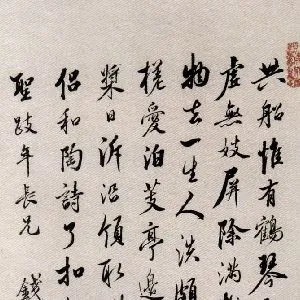 共船惟有鶴琴
虚無妓屏除滿
物玄一生人淡頗
槎愛泊芰亭邊
槳日泝沿頎取
侣和陶詩了扣
聖跂年長兄
錢